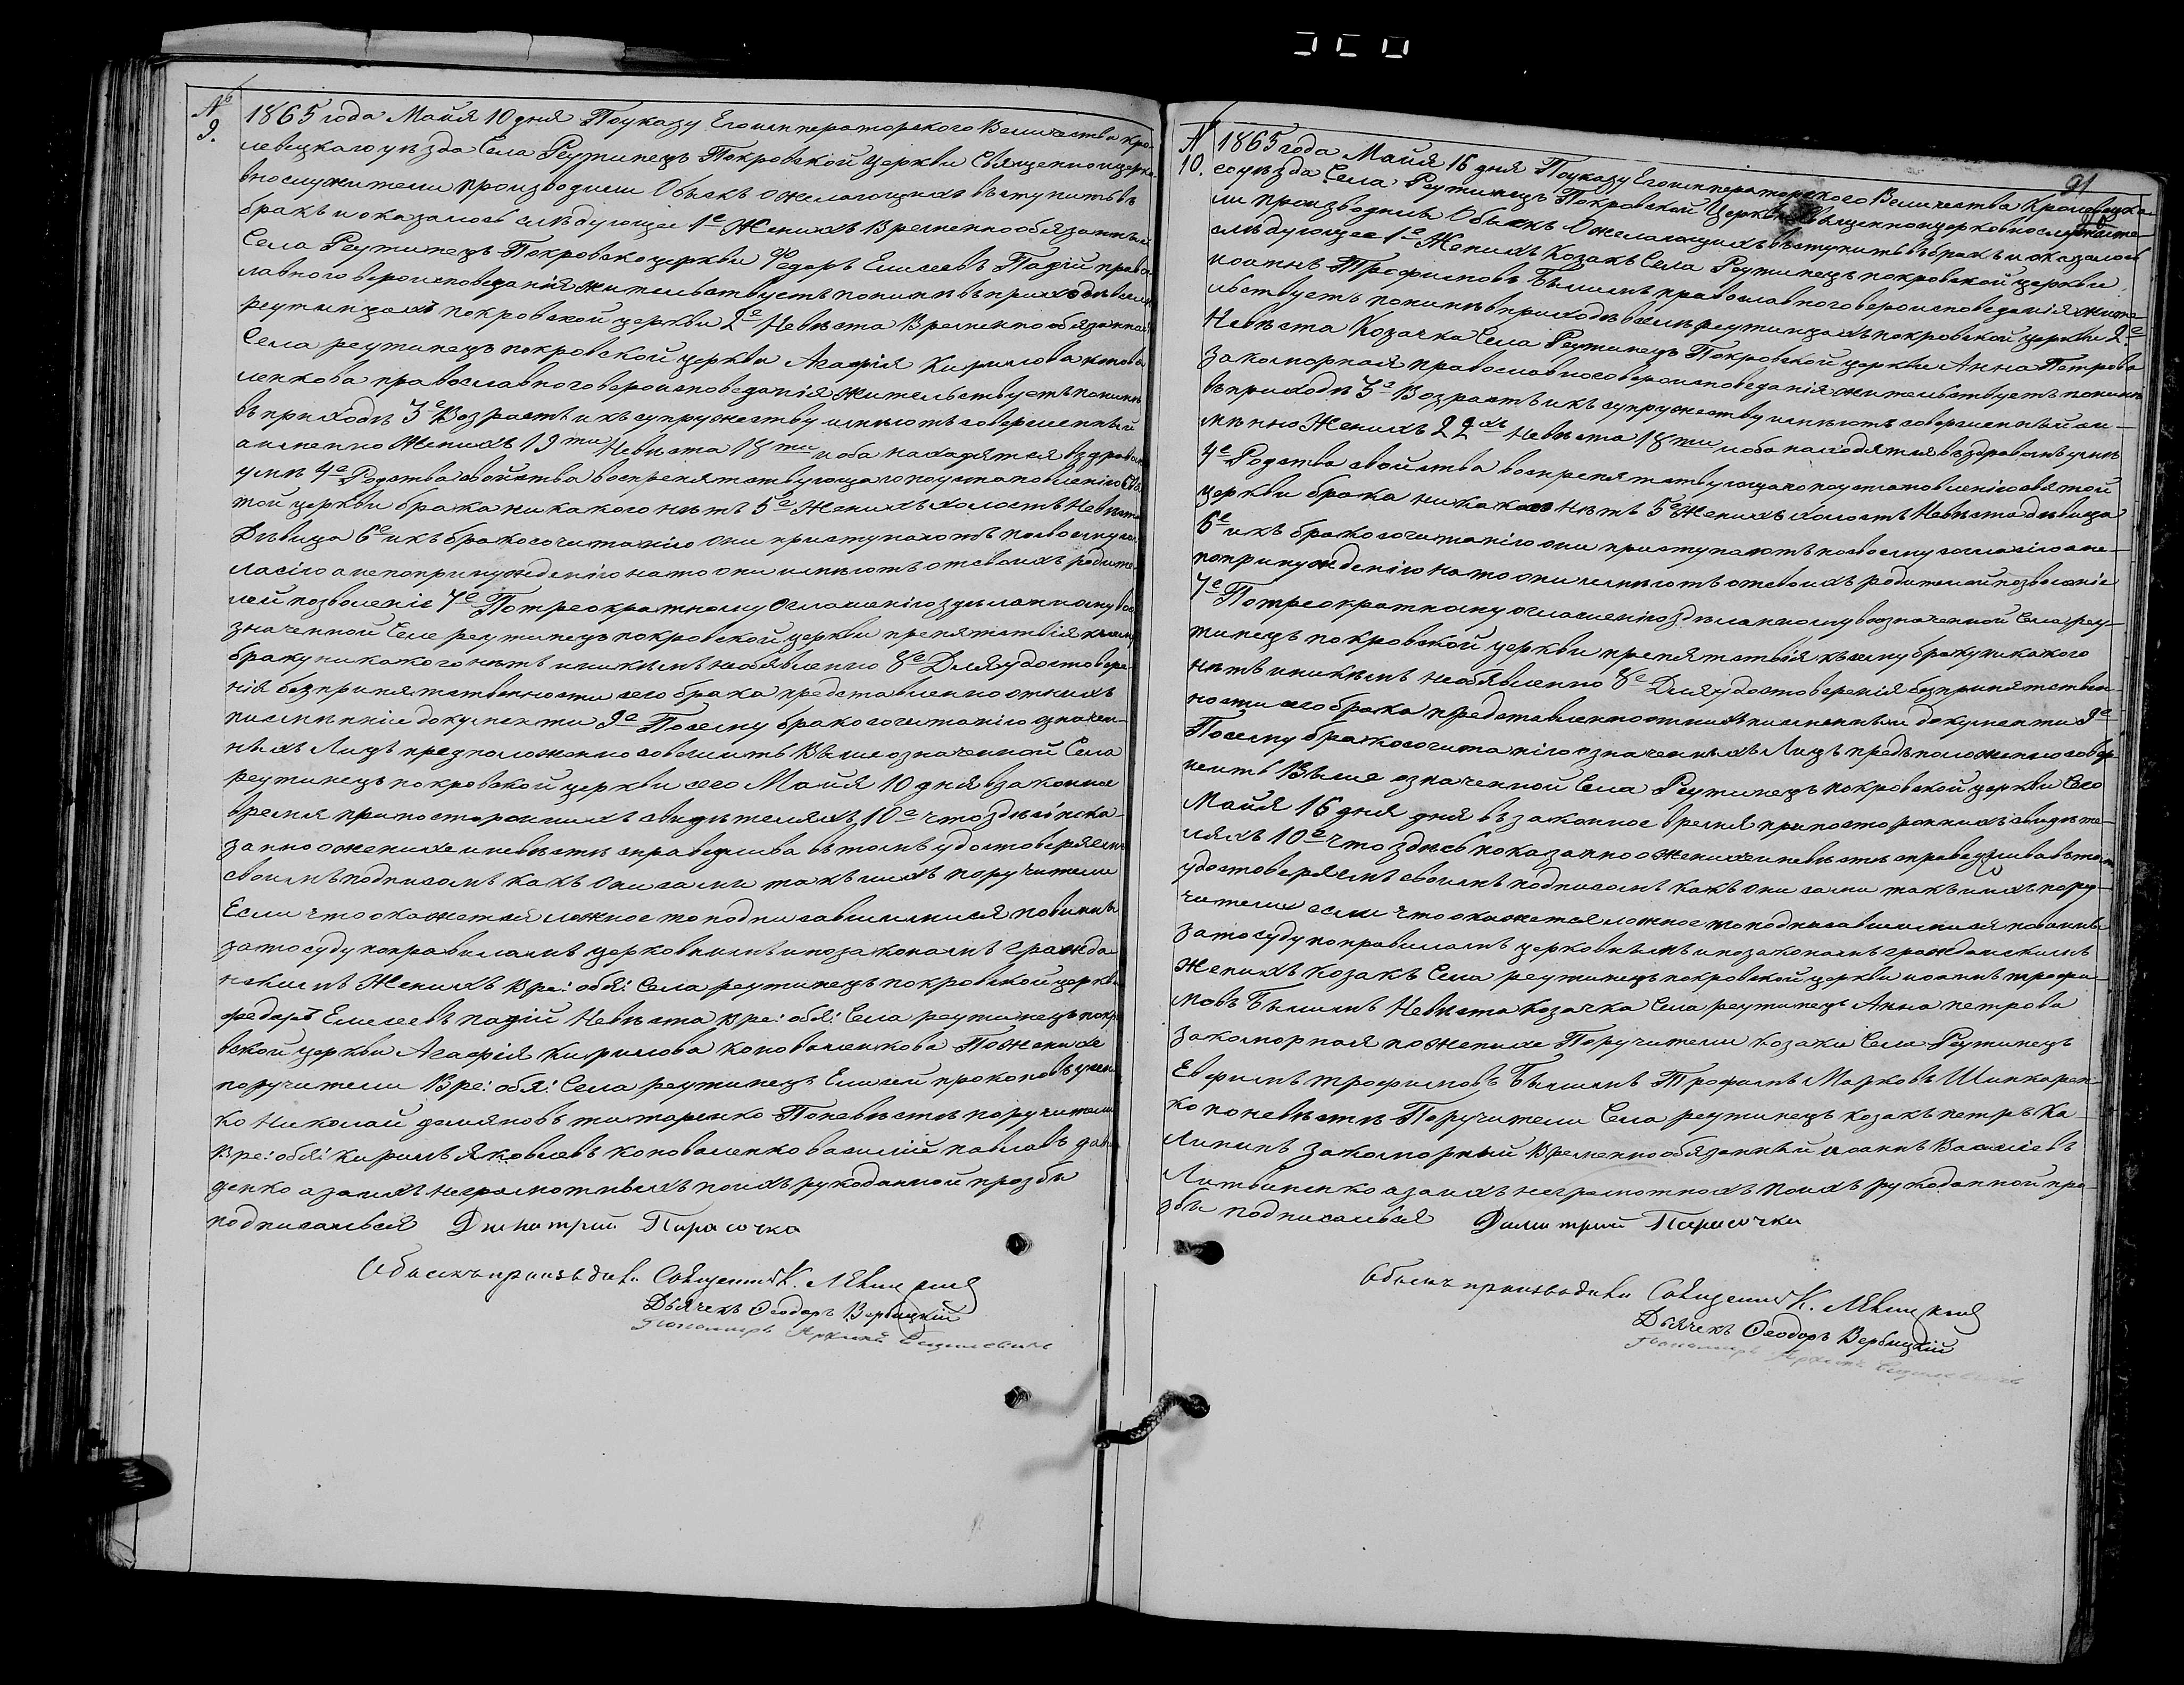 № 9.
1865 года Майя 10 дня По указу Его императорского Величества кро-
левецкаго уезда Села Реутинецъ Покровской Церкви Священно и церко-
внослужители производили Обыскъ о желающихъ вступить въ
бракъ и оказалось следующее 1е Женихъ Временно обязанный
Села Реутинецъ Покровско церкви Федоръ Елисеевъ Падій право-
славного вероисповеданія жительствуетъ понине въ приходе села
реутинцахъ покровской церкви 2е Невѣста Временно обязанная
Села реутинецъ покровской церкви Агафія Кирилова конова-
ленкова православного вероисповеданія жительствуетъ понинѣ
въ приходѣ 3е Возрастъ и къ супружеству имѣютъ совершенный
а именно Женихъ 19ти Невѣста 18ти и оба находятся въ здравомъ
умѣ 4е Родства свойства воспрепятствующаго по установленію Свя-
той церкви брака никакого нѣтъ 5е Женихъ холостъ Невѣста
Дѣвица 6е и къ бракосочитанію они приступаютъ по своему со-
гласію а не по принужденію на то они имѣютъ отъ своихъ родите-
лей позволеніе 7е По трехкратному Оглашенію зделанному во о-
значенной Селе реутинецъ покровской церкви препятствія къ сему
браку никакого нѣтъ и никѣмъ необявленно 8е Для удостовере-
нія безпрпятственности сего брака представленно о нихъ
писмѣнніе документи 9е По сему бракосочитаніго означен-
ныхъ Лицъ предположенно совешить Выше означенной Села
реутинецъ покровской церкви сего Майя 10 дня взаконное
время при посторонихъ свидѣтеляхъ 10е что здѣсь пока-
занно о женихе и невѣстѣ справедлива въ томъ удостоверяемъ
своимъ подписомъ какъ они сами такъ ихъ поручители
Если что окажется ложное то подписавшимися повинны
за то суду по правиламъ церковнымъ и по законамъ гражда-
нскимъ Женихъ вре: обя: Села реутинецъ покровской церкви
федоръ Елисеевъ падій Невѣста вре: обя: Села реутинецъ покро-
вской церкви Агафія кирилова коноваленкова По Женихе
поручители Вре: обя: Села реутинецъ Елисей прокоповъ
ко Николай демяновъ титаренко По невѣстѣ поручители
Вре: обя: кирилъ Яковлевъ коноваленко василий павловъ дави-
денко а за ихъ неграмотныхъ по ихъ рукоданной прозби
подписалься Димитрий Парасочка
Обыскъ производили Священник К. Левицкий
Дьячекъ Феодоръ Вербицкій
Пономарь
91
№ 10.
1865 года Майя 16 дня По указу Его императорского Величества Кролевецка-
го уезда Села Реутинецъ Покровской Церкви Священно и церковнослужите-
ли производили Обыскъ О желающихъ вступить въ бракъ и оказалось
слѣдующее 1е Женихъ Козакъ Села Реутинецъ покровской церкви
иоаннъ Трофимовъ Былимъ православного вероисповеданія жите-
льствуетъ понинѣ въ приходѣ селѣ реутинцахъ покровской церкви 2е
Невѣста Козачка Села Реутинецъ Покровской церкви Анна Петрова
закоморная православного вероисповеданія жительствуетъ понинѣ
въ приходѣ 3е Возрастъ и къ супружеству имѣютъ совершенный аи-
мѣнно Женихъ 22хъ Невѣста 18ти и оба находятся въ здравомъ умѣ
4е Родства свойства воспрепятствующаго по установленію святой
церкви брака никакого нѣтъ 5е Женихъ холостъ Невѣста дѣвица
6е и къ бракосочитанію они приступаютъ по своему согласію а не
по принуждѣнію на то они имѣютъ отъ своихъ родителей позволеніе
7е По трехкратному оглашенію здѣланному во означенной Села реу-
тинецъ покровской церкви препятствія къ сему браку никакого
нѣтъ и никѣмъ необявленно 8е Для удостоверенія безприпятствен-
ности сего брака представленно о нихъ писменныи документи 9е
По сему бракосочитаніго означенныхъ Лицъ предъположенно совер-
шить Выше означенной Села Реутинецъ покровской церкви Сего
Майя 16 дня дня въ законное время при посторонихъ свидѣте-
ляхъ 10е что здѣсь показанно о женихе и невѣстѣ справедлива въ томъ
удостоверяемъ своимъ подписомъ какъ они сами такъ и ихъ пору-
чители если что окажется ложное то подписавшимися повинны
за то суду по правиламъ церковнымъ и по законамъ гражданскимъ
Женихъ козакъ Села реутинецъ покровской церкви иоаннъ трофи-
мовъ Былимъ Невѣста козачка Села реутинецъ Анна петрова
закоморная по женихе Поручители козаки Села Реутинецъ
Евфимъ трофимовъ Былимъ Трофимъ Марковъ Шинкарен-
ко по невѣстѣ Поручители Села реутинецъ козакъ петръ Ка-
лининъ Закоморный Временно обязанный иоаннъ Васильевъ
Литвиненко а за ихъ неграмотнохъ по ихъ рукоданной про-
зби подписалься Димитрий Парасочка
Обыскъ производили Священник К. Левицкий
Дьячекъ Феодоръ Вербицкій
Пономарь